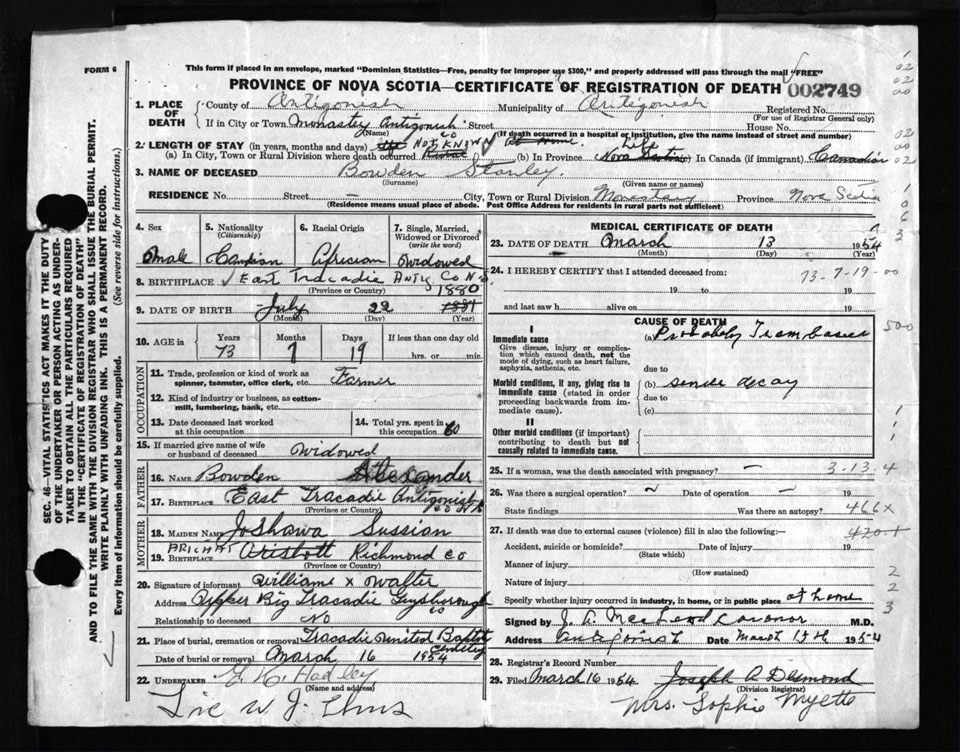 FORM 6
This form if placed in an envelope, marked "Dominion Statistics—Free, penalty for improper use $300," and properly addressed will pass through the mail "FREE"
PROVINCE OF NOVA SCOTIA—CERTIFICATE OF REGISTRATION OF DEATH 002749
1. PLACE OF DEATH County of Antigonish Municipality of Antigonish Registered No.
(For use of Registrar General only)
If in City or Town Monastery Antigonish Co Street House No.
(Name) (If death occurred in a hospital or institution, give the name instead of street and number)
2. LENGTH OF STAY (in years, months and days) NOT KNOWN At Home. Life
(a) In City, Town or Rural Division where death occurred (b) In Province Nova Scotia In Canada (if immigrant) Canadian
3. NAME OF DECEASED Bowden Stanley.
(Surname) (Given name or names)
RESIDENCE No. Street City, Town or Rural Division Monastery Province Nova Scotia
(Residence means usual place of abode. Post Office Address for residents in rural parts not sufficient)
SEC. 46—VITAL STATISTICS ACT MAKES IT THE DUTY OF THE UNDERTAKER OR PERSON ACTING AS UNDERTAKER TO OBTAIN ALL THE PARTICULARS REQUIRED IN THE "CERTIFICATE OF REGISTRATION OF DEATH" AND TO FILE THE SAME WITH THE DIVISION REGISTRAR WHO SHALL ISSUE THE BURIAL PERMIT.
WRITE PLAINLY WITH UNFADING INK. THIS IS A PERMANENT RECORD.
Every item of information should be carefully supplied. (See reverse side for instructions.)
4. Sex 5. Nationality (Citizenship) 6. Racial Origin 7. Single, Married, Widowed or Divorced (write the word)
Male Canadian African Widowed
8. BIRTHPLACE East Tracadie Antg Co N.S
(Province or Country) 1880
9. DATE OF BIRTH July 22 1881
(Month) (Day) (Year)
10. AGE in Years Months Days If less than one day old
73 7 19 hrs. or min.
OCCUPATION
11. Trade, profession or kind of work as spinner, teamster, office clerk, etc. Farmer
12. Kind of industry or business, as cotton-mill, lumbering, bank, etc.
13. Date deceased last worked at this occupation 14. Total yrs. spent in this occupation 60
15. If married give name of wife or husband of deceased Widowed
FATHER
16. NAME Bowden Alexander
17. BIRTHPLACE East Tracadie Antigonish Co N.S
(Province or Country)
MOTHER
18. MAIDEN NAME Joshawa Sussian
19. BIRTHPLACE ARICHAT Aristott Richmond Co
(Province or Country)
20. Signature of informant Williams x Walter
Address Upper Big Tracadie Guysborough Co
Relationship to deceased No
21. Place of burial, cremation or removal Tracadie United Baptist Cemetery
Date of burial or removal March 16 1954
22. UNDERTAKER G. H. Hadley
(Name and address)
MEDICAL CERTIFICATE OF DEATH
23. DATE OF DEATH March 13 1954
(Month) (Day) (Year)
24. I HEREBY CERTIFY that I attended deceased from:
73-7-19-00
19 to 19
and last saw h alive on 19
CAUSE OF DEATH
I
Immediate cause
Give disease, injury or complication which caused death, not the mode of dying, such as heart failure, asphyxia, asthenia, etc.
(a) Probably
due to
Morbid conditions, if any, giving rise to immediate cause (stated in order proceeding backwards from immediate cause).
(b) senile decay
due to
(c)
II
Other morbid conditions (if important) contributing to death but not causally related to immediate cause.
500
25. If a woman, was the death associated with pregnancy? — 3.13.4
26. Was there a surgical operation? ~ Date of operation — 19
State findings Was there an autopsy? 466X
27. If death was due to external causes (violence) fill in also the following:— 420.1
Accident, suicide or homicide? Date of injury 19
(State which)
Manner of injury
(How sustained)
Nature of injury
Specify whether injury occurred in industry, in home, or in public place at home
Signed by MacLeod Coronor M.D.
Address Antigonish Date March 15th 1954
28. Registrar's Record Number
29. Filed March 16 1954 Joseph A Desmond
(Division Registrar)
Mrs. Sophie Myette